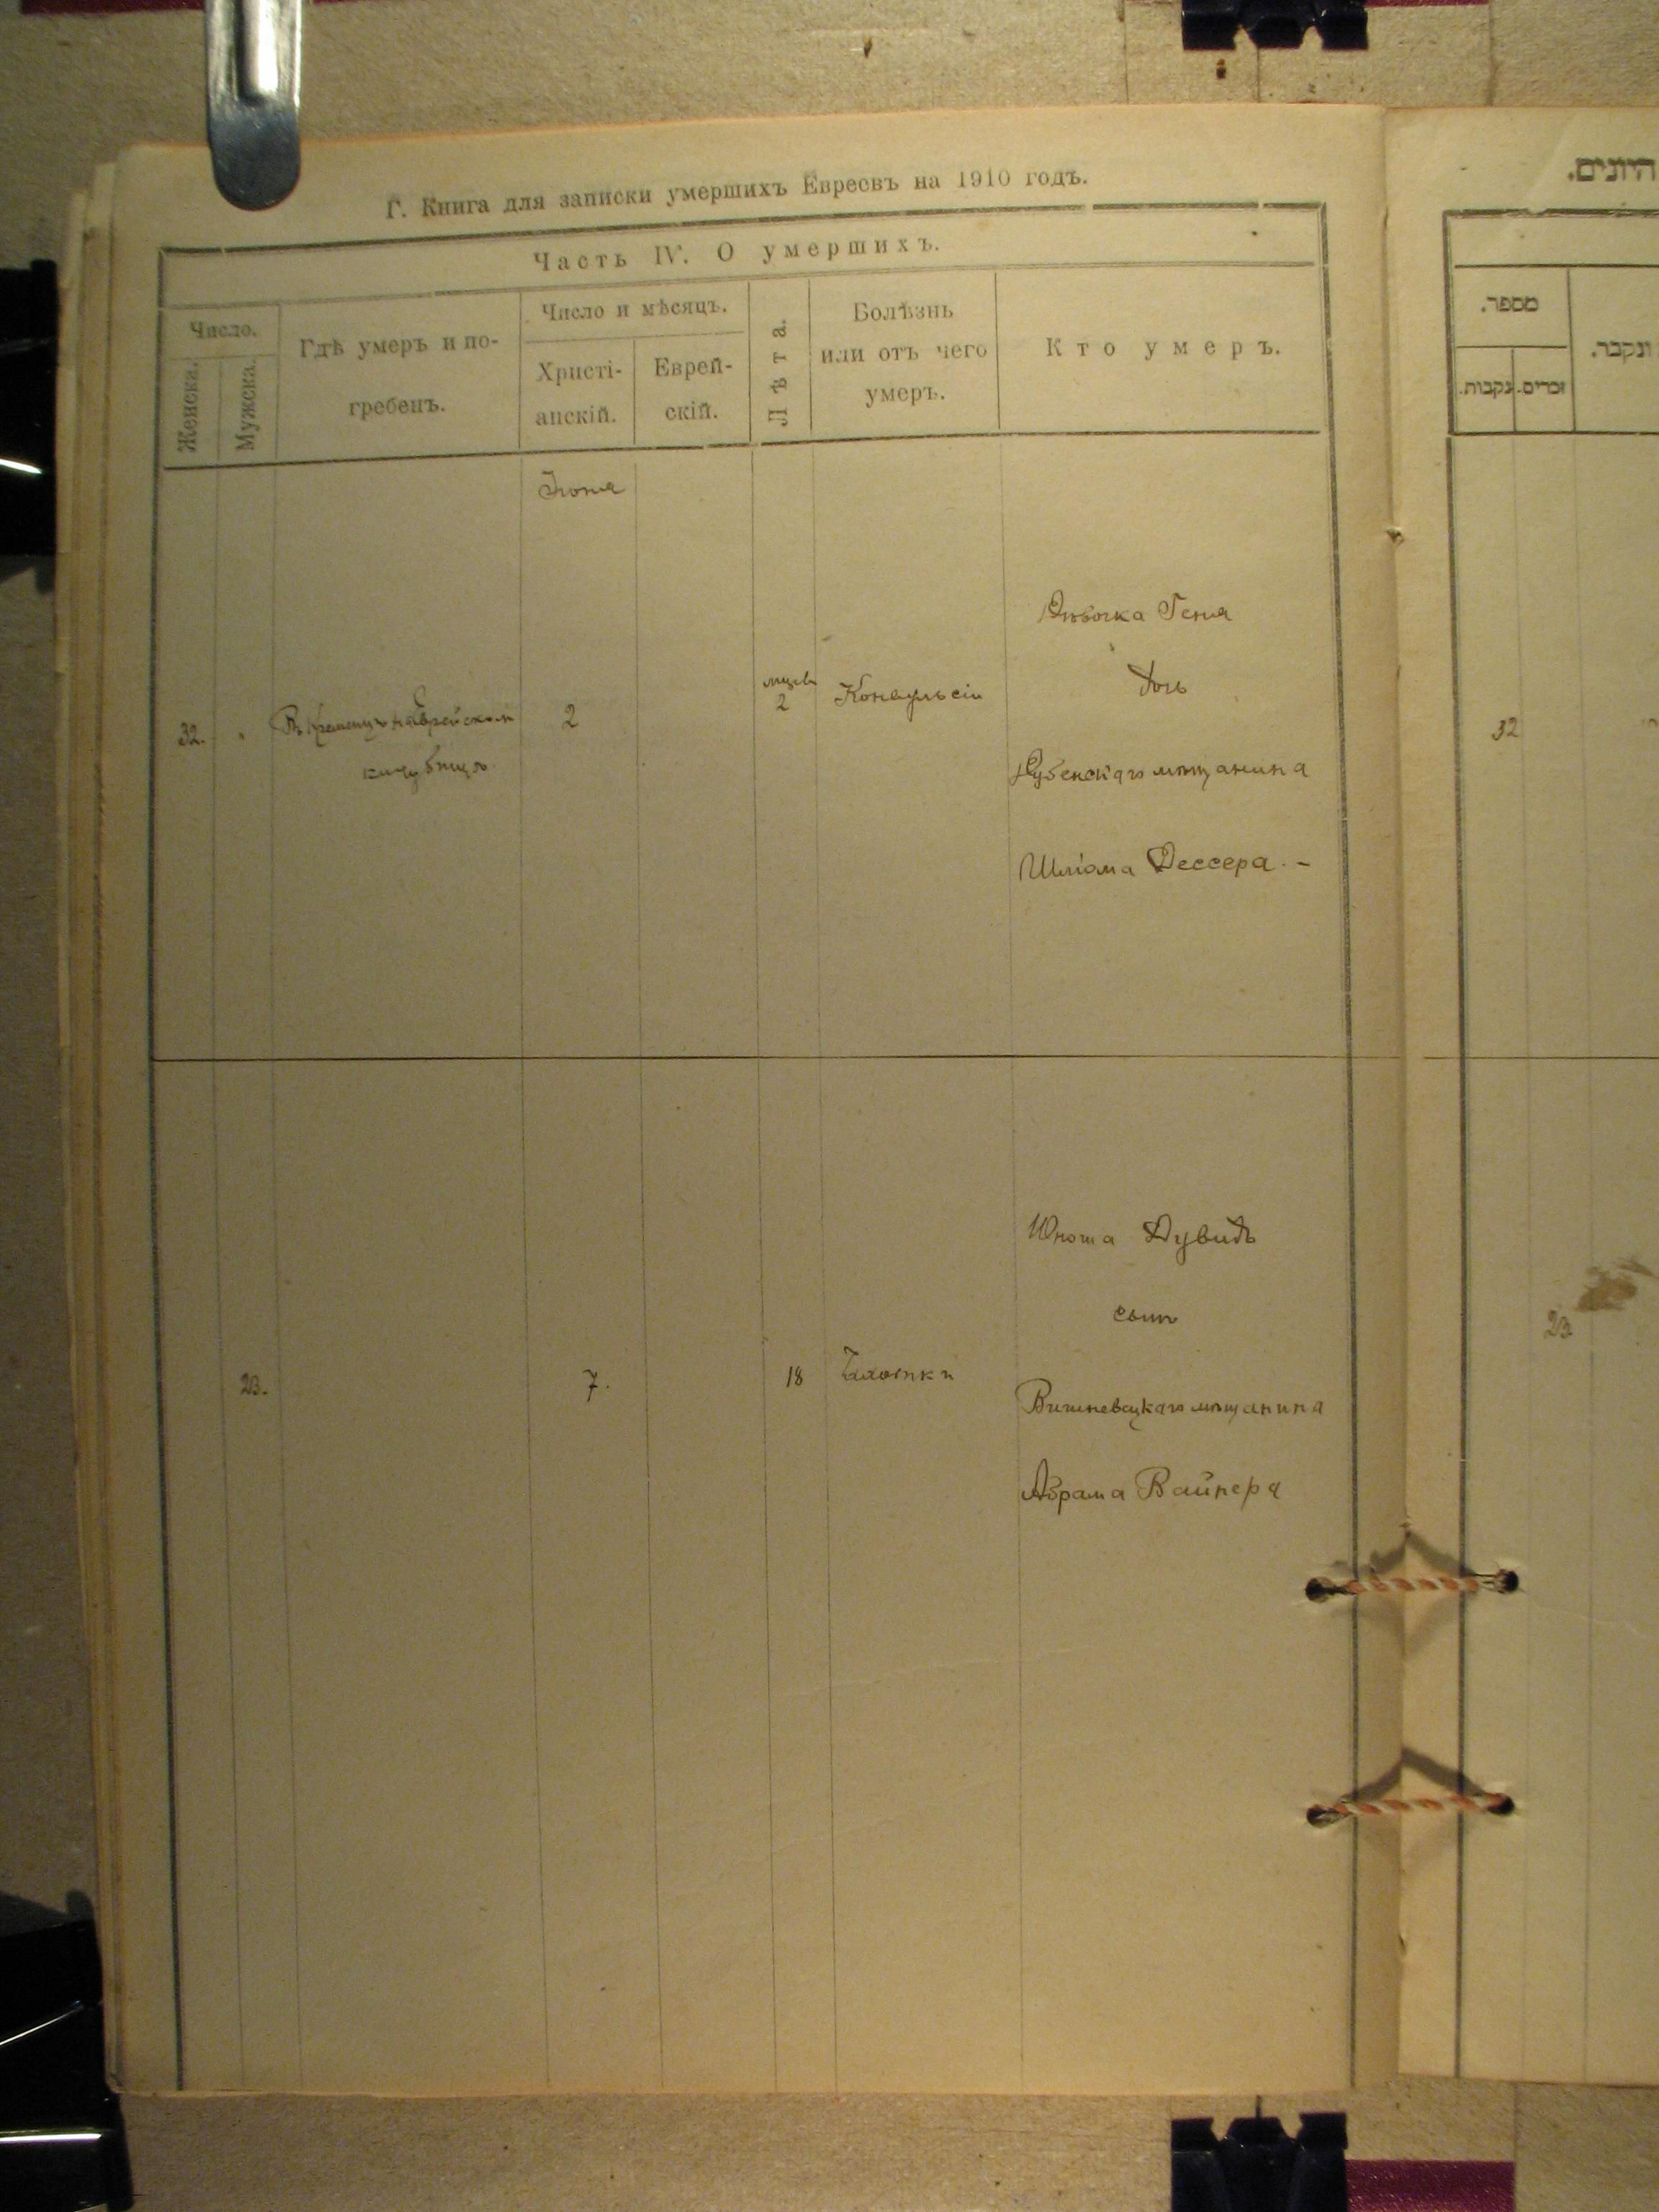 Г. Книга для записки умершихъ Евреевъ на 1910 годъ.
Часть IV. О умершихъ.
Число.
Женска.
Мужска.
Гдѣ умеръ и по-
гребенъ.
Число и мѣсяцъ.
Христі-
анскій.
Еврей-
скій.
Лѣта.
Болѣзнь
или отъ чего
умеръ.
Кто умеръ.
Іюня
32.
Въ Кременцѣ на Еврейском
кладбищѣ
2
2
Конвульсіи
Дѣвочка Геня
дочь
Дубенскаго мѣщанина
Шліома Дессера. -
23.
7.
18
Чахотки
Юноша Дувидъ
сынъ
Вишневецкаго мѣщанина
Абрама Вайнера
מספר.
נקבות.
זכרים.
ונקבר.
32
23